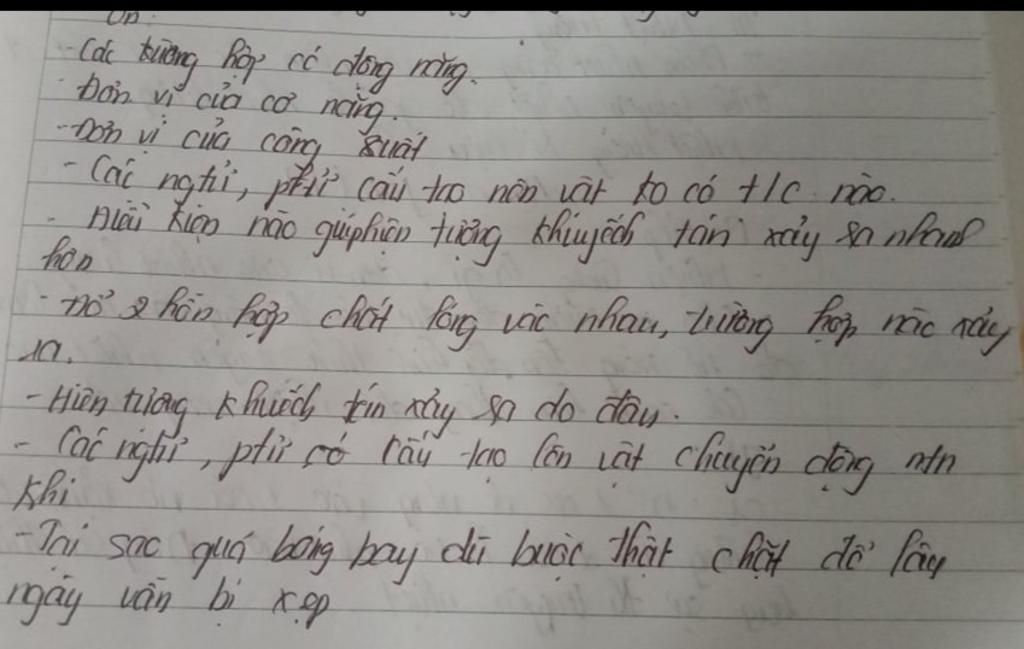 ôn.
- Các trường hợp có động năng.
- Đơn vị của cơ năng.
- Đơn vị của công suất
- Các ngtử, ptử cấu tạo nên vật to có t/c nào.
- Điều kiện nào giúp hiện tượng khuyếch tán xảy sa nhanh
hơn
- Đổ 2 hỗn hợp chất lỏng vào nhau, trường hợp nào xảy
ra.
- Hiện tượng khuếch tán xảy sa do đâu.
- Các ngtử, ptử có cấu tạo lên vật chuyển động ntn
khi
- Tại sao quả bóng bay dù buộc thật chặt để lâu
ngày vẫn bị xẹp